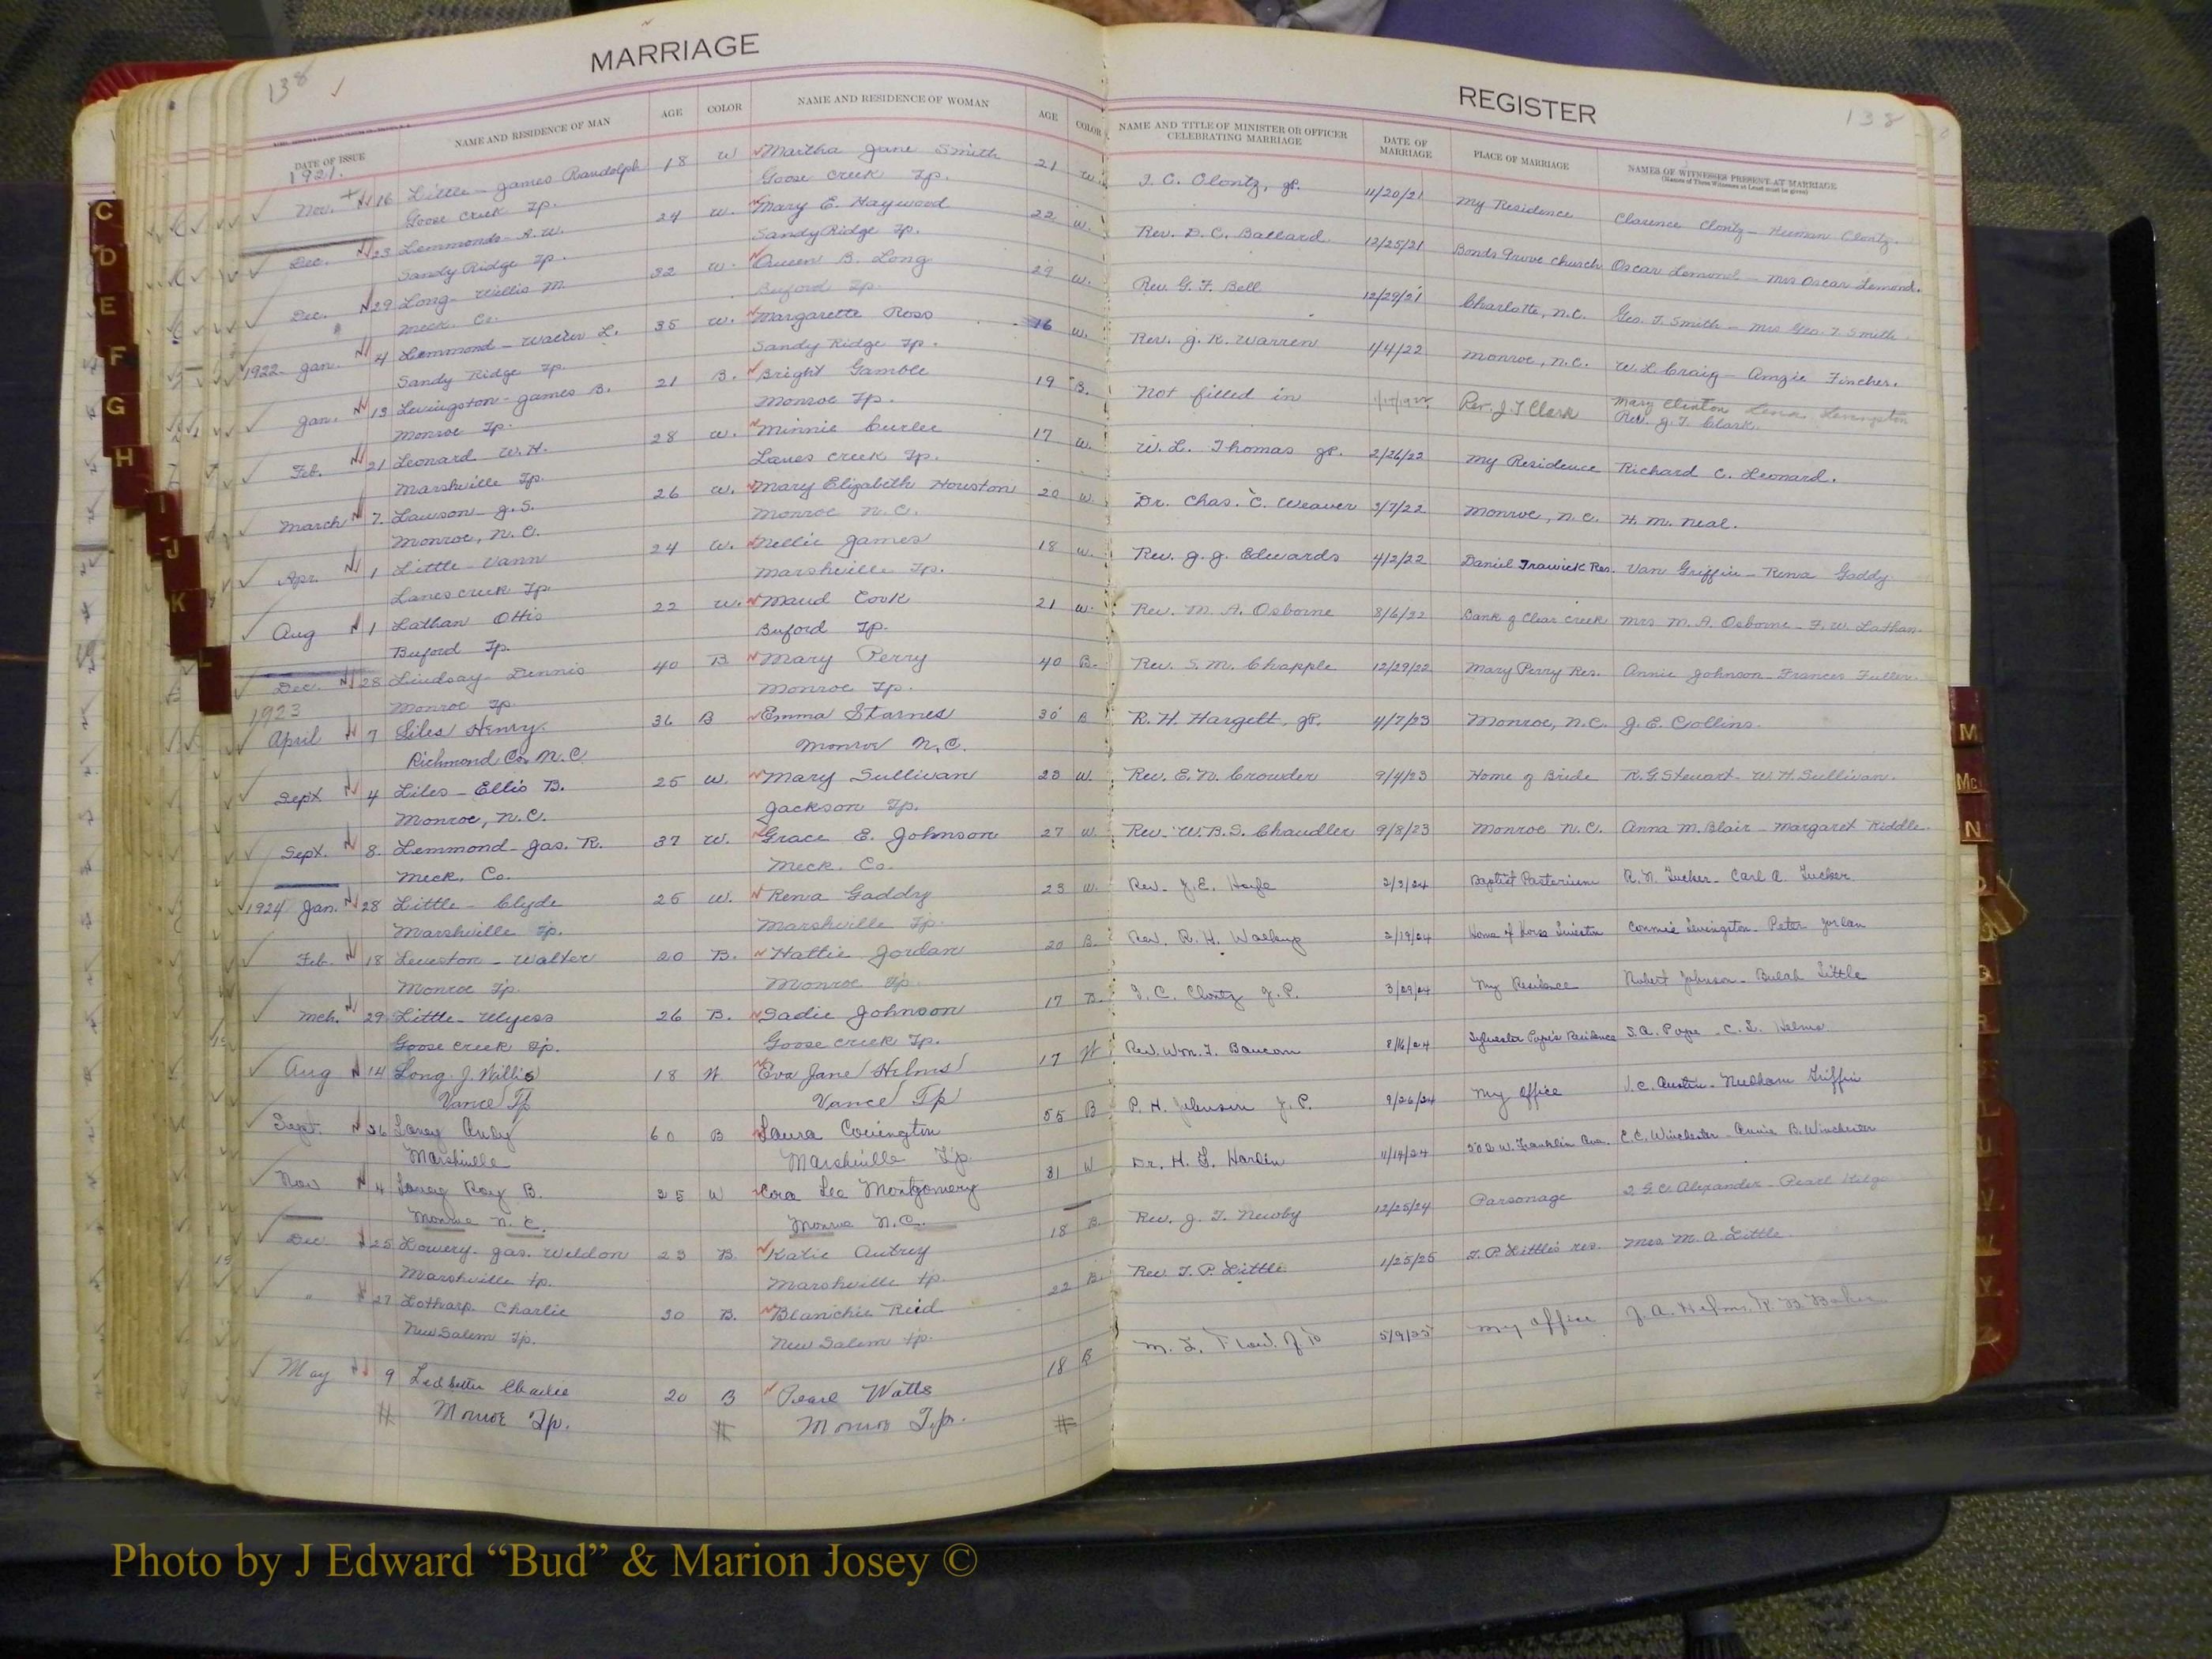 138 MARRIAGE
DATE OF ISSUE NAME AND RESIDENCE OF MAN AGE COLOR NAME AND RESIDENCE OF WOMAN AGE COLOR
1921.
Nov. 16 Little - James Randolph 18 W Martha Jane Smith 21 W.
Goose Creek Tp. Goose Creek Tp.
Dec. 23 Lemmonds - A. W. 24 W. Mary E. Haywood 22 W.
Sandy Ridge Tp. Sandy Ridge Tp.
Dec. 29 Long - Willis M. 32 W. Queen B. Long 29 W.
Meck. Co. Buford Tp.
1922 Jan. 4 Lemmond - Walter L. 35 W. Margarette Ross 16 W.
Sandy Ridge Tp. Sandy Ridge Tp.
Jan. 13 Levingston - James B. 21 B. Bright Gamble 19 B.
Monroe Tp. Monroe Tp.
Feb. 21 Leonard W. H. 28 W. Minnie Curlee 17 W.
Marshville Tp. Lanes Creek Tp.
March 7 Lawson - J. S. 26 W. Mary Elizabeth Houston 20 W.
Monroe, N. C. Monroe N. C.
Apr. 1 Little - Vann 24 W. Nellie James 18 W.
Lanes creek Tp. Marshville Tp.
Aug 1 Lathan Ottis 22 W. Maud Cook 21 W.
Buford Tp. Buford Tp.
Dec. 28 Lindsay - Dennis 40 B Mary Perry 40 B.
Monroe Tp. Monroe Tp.
1923
April 7 Liles Henry 36 B Emma Starnes 30 B
Richmond Co. N. C Monroe N. C.
Sept 4 Liles - Ellis B. 25 W. Mary Sullivan 23 W.
Monroe, N. C. Jackson Tp.
Sept. 8. Lemmond - Jas. R. 37 W. Grace E. Johnson 27 W.
Meck. Co. Meck. Co.
1924 Jan. 28 Little - Clyde 25 W. Rena Gaddy 23 W.
Marshville Tp. Marshville Tp.
Feb. 18 Leveston - Walter 20 B. Hattie Jordan 20 B.
Monroe Tp. Monroe Tp.
Mch. 29 Little - Ulyess 26 B. Sadie Johnson 17 B.
Goose creek Tp. Goose creek Tp.
Aug 14 Long J. Willis 18 W Eva Jane Helms 17 W
Vance Tp Vance Tp
Sept. 26 Laney Andy 60 B Laura Covington 55 B
Marshville Marshville Tp.
Nov 4 Laney Ray B. 35 W Cora Lee Montgomery 31 W
Monroe N. C. Monroe N. C.
Dec 25 Lowery - Jas. Weldon 23 B. Katie Autrey 18 B
Marshville tp. Marshville tp.
" 27 Lotharp Charlie 30 B. Blanchie Reid 22 B.
New Salem Tp. New Salem tp.
May 9 Ledbetter Charlie 20 B Pearl Watts 18 B
Monroe Tp. Monroe Tp.
REGISTER 138
NAME AND TITLE OF MINISTER OR OFFICER CELEBRATING MARRIAGE DATE OF MARRIAGE PLACE OF MARRIAGE NAMES OF WITNESSES PRESENT AT MARRIAGE
(Names of Three Witnesses at Least must be given)
I. C. Clontz, JP. 11/20/21 My Residence Clarence Clontz - Herman Clontz.
Rev. D. C. Ballard. 12/25/21 Bonds Grove Church Oscar Lemond - Mrs Oscar Lemond.
Rev. G. F. Bell 12/29/21 Charlotte, N.C. Geo. T. Smith - Mrs Geo. T. Smith.
Rev. J. R. Warren 1/4/22 Monroe, N.C. W. L. Craig - Amzie Fincher.
Not filled in Rev. J T Clark Mary Clinton
Rev. J. T. Clark.
W. L. Thomas JP. 2/26/22 My Residence Richard C. Leonard.
Dr. Chas. C. Weaver 3/7/22 Monroe, N.C. H. M. Neal.
Rev. J. J. Edwards 4/2/22 Daniel Trawick Res. Van Griffin - Rena Gaddy
Rev. M. A. Osborne 8/6/22 Bank of Clear Creek Mrs M. A. Osborne - F. W. Lathan.
Rev. S. M. Chapple 12/29/22 Mary Perry Res. Annie Johnson - Frances Fuller.
R. H. Hargett, JP. 4/7/23 Monroe, N.C. J. E. Collins.
Rev. E. N. Crowder 9/4/23 Home of Bride R. G. Steuart - W. H. Sullivan.
Rev. W. B. S. Chandler 9/8/23 Monroe N.C. Anna M. Blair - Margaret Riddle.
Rev. J. E. Hoyle 2/3/24 Baptist Pastorium R. N. Tucker - Carl A. Tucker
Rev. R. H. Walkup 2/19/24 Home of Connie Livingston - Peter Jordan
I. C. Clontz J. P. 3/29/24 My Residence Robert Johnson - Bulah Little
Rev. Wm. T. Baucom 8/16/24 Sylvester Pope's Residence S. A. Pope - C. L. Helms
P. H. Johnson J. P. 9/26/24 My Office J. C. Austin - Needham Griffin
Dr. H. G. Hardin 11/14/24 502 W. Franklin Ave. E. C. Winchester - Annie B. Winchester
Rev. J. T. Newby 12/25/24 Parsonage Alexander - Pearl
Rev T. P. Little 1/25/25 T. P. Little's res. Mrs. M. A. Little.
M. L. Flow. J P 5/9/25 My Office J. A. Helms, R. B. Baker
C
D
E
F
G
H
I
J
K
L
M
Mc
N
Photo by J Edward “Bud” & Marion Josey ©